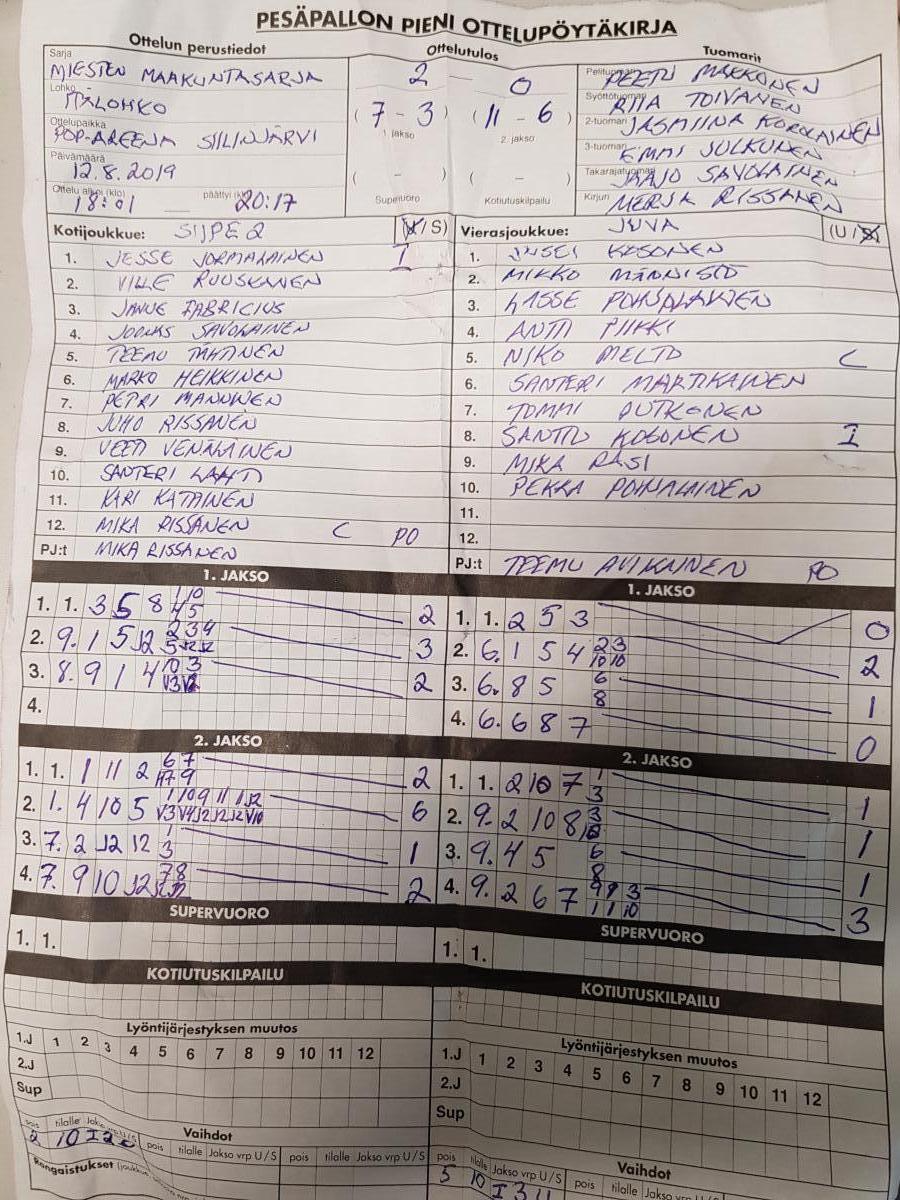 PESÄPALLON PIENI OTTELUPÖYTÄKIRJA
Ottelun perustiedot
Sarja
MIESTEN MAAKUNTASARJA
Lohko
ITÄLOHKO
Ottelupaikka
POP-AREENA SIILINJÄRVI
Päivämäärä
12.8.2019
Ottelu alkoi (klo) päättyi (klo)
18:01 20:17
Ottelutulos
2 — 0
(7 - 3) (11 - 6)
1. jakso 2. jakso
( - ) ( - )
Supervuoro Kotiutuskilpailu
Tuomarit
Pelituomari PEETU MAKKONEN
Syöttötuomari RIIA TOIVANEN
2-tuomari JASMIINA KOROLAINEN
3-tuomari EMMI JULKUNEN
Takarajatuomari JAAJO SAVOLAINEN
Kirjuri MERJA RISSANEN
Kotijoukkue: SIIPE 2 (U / S)
1. JESSE JORMALAINEN I
2. VILLE RUUSKANEN
3. JANNE FABRICIUS
4. JOONAS SAVOLAINEN
5. TEEMU TÄHTINEN
6. MARKO HEIKKINEN
7. PETRI MANNINEN
8. JUHO RISSANEN
9. VEETI VENÄLÄINEN
10. SANTERI LAHTI
11. KARI KATAINEN
12. MIKA RISSANEN C PO
PJ:t MIKA RISSANEN
Vierasjoukkue: JUVA (U / S)
1. KOSONEN
2. MIKKO MÄNNISTÖ
3. LASSE POHJALAINEN
4. ANTTI PIIKKI
5. NIKO MELTO C
6. SANTERI MARTIKAINEN
7. TOMMI PUTKONEN
8. SANTTU KOSONEN I
9. MIKA RASI
10. PEKKA POHJALAINEN
11.
12.
PJ:t TEEMU AVIKAINEN PO
1. JAKSO
1. 1. 3 5 8 1 10 2
4 5
2. 9. 1 5 12 2 3 4 3
3. 8. 9 1 4 10 3 2
4.
1. JAKSO
1. 1. 2 5 3 0
2. 6. 1 5 4 2 3 2
10 10
3. 6. 8 5 6 1
8
4. 6. 6 8 7 0
2. JAKSO
1. 1. 1 11 2 6 7 2
2. 1. 4 10 5 1 10 9 11 1 12 6
3. 7. 2 12 12 1 1
3
4. 7. 9 10 12 7 8 2
2. JAKSO
1. 1. 2 10 7 1 1
3
2. 9. 2 10 8 3 1
3. 9. 4 5 6 1
8
4. 9. 2 6 7 9 9 3 3
1 1 10
SUPERVUORO
1. 1.
SUPERVUORO
1. 1.
KOTIUTUSKILPAILU
KOTIUTUSKILPAILU
Lyöntijärjestyksen muutos
1.J 1 2 3 4 5 6 7 8 9 10 11 12
2.J
Sup
Lyöntijärjestyksen muutos
1.J 1 2 3 4 5 6 7 8 9 10 11 12
2.J
Sup
Vaihdot
pois tilalle Jakso vrp U/S pois tilalle Jakso vrp U/S pois tilalle Jakso vrp U/S
2 10 I 2
Rangaistukset
Vaihdot
pois tilalle Jakso vrp U/S pois tilalle Jakso vrp U/S
5 10 I 3 U